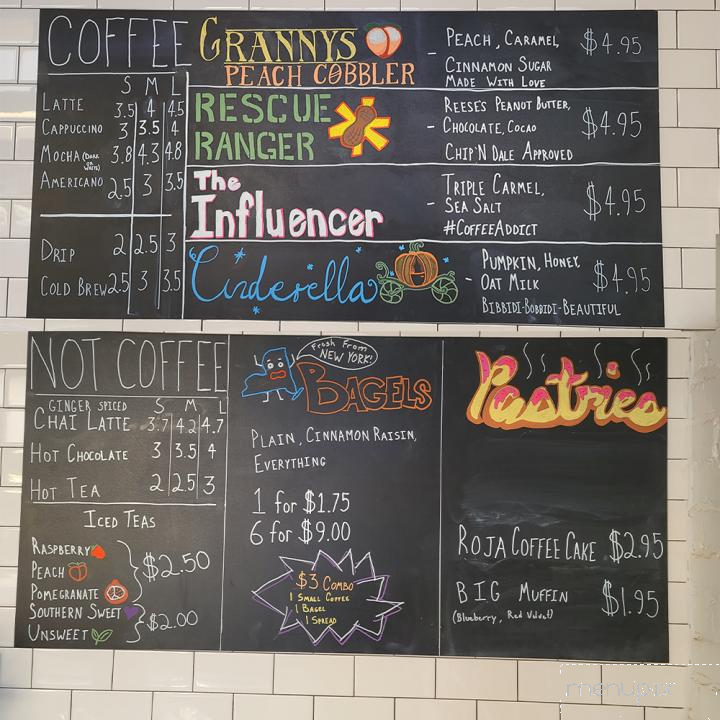 COFFEE
S M L
LATTE 3.5 4 4.5
CAPPUCCINO 3 3.5 4
MOCHA (DARK OR WHITE) 3.8 4.3 4.8
AMERICANO 2.5 3 3.5
DRIP 2 2.5 3
COLD BREW 2.5 3 3.5
GRANNYS
PEACH COBBLER
- PEACH, CARAMEL,
CINNAMON SUGAR
MADE WITH LOVE
$4.95
RESCUE
RANGER
REESE'S PEANUT BUTTER,
- CHOCOLATE, COCAO
CHIP'N DALE APPROVED
$4.95
The
Influencer
TRIPLE CARMEL,
- SEA SALT
#COFFEEADDICT
$4.95
Cinderella
PUMPKIN, HONEY,
- OAT MILK
BIBBIDI-BOBBIDI-BEAUTIFUL
$4.95
NOT COFFEE
S M L
GINGER SPICED
CHAI LATTE 3.7 4.2 4.7
HOT CHOCOLATE 3 3.5 4
HOT TEA 2 2.5 3
ICED TEAS
RASPBERRY
PEACH
POMEGRANATE
$2.50
SOUTHERN SWEET
UNSWEET
$2.00
Fresh From
NEW YORK!
BAGELS
PLAIN, CINNAMON RAISIN,
EVERYTHING
1 for $1.75
6 for $9.00
$3 COMBO
1 SMALL COFFEE
1 BAGEL
1 SPREAD
Pastries
ROJA COFFEE CAKE $2.95
BIG MUFFIN $1.95
(Blueberry, Red Velvet)
menupix